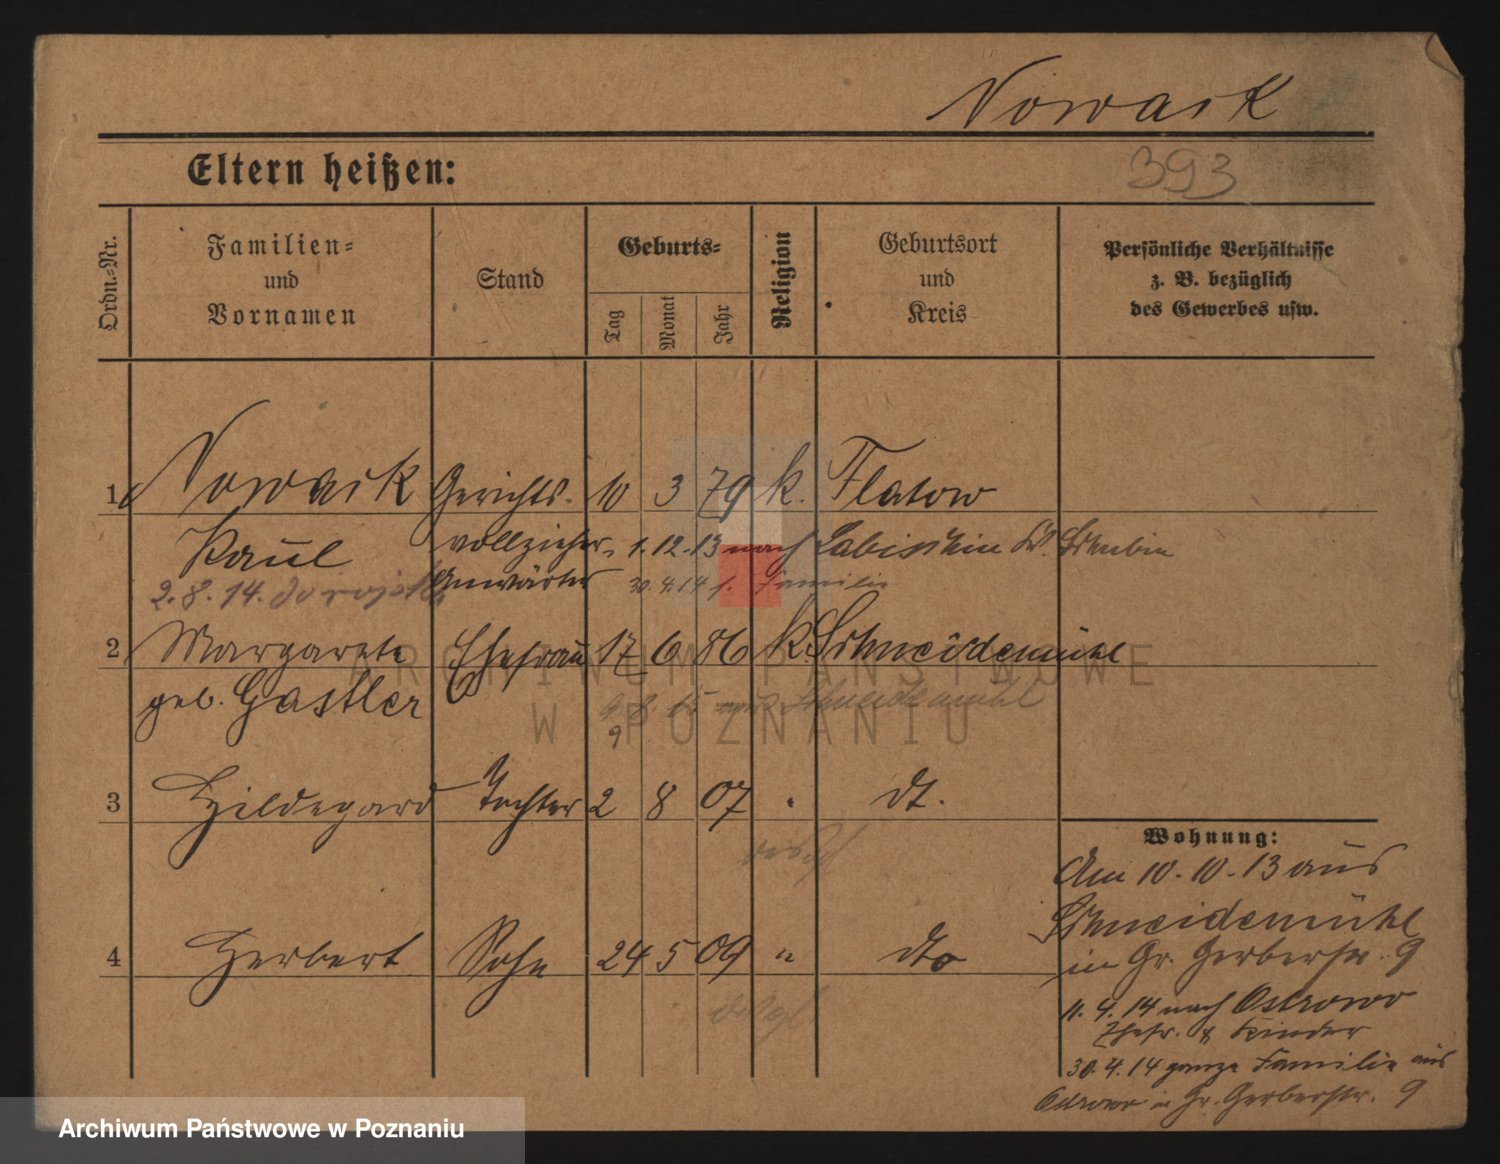 Nowack
Eltern heißen:
393
Ordn.-Nr.
Familien-
und
Vornamen
Stand
Geburts-
Tag
Monat
Jahr
Religion
Geburtsort
und
Kreis
Persönliche Verhältnisse
z. B. bezüglich
des Gewerbes usw.
1 Nowack Gerichts- 10 3 79 k. Flatow
Paul vollzieher- 1.12.13 nach Labischin Kr. Schubin
Anwärter 30.4.14 z. Familie
2.8.14.
2 Margarete Ehefrau 17 6 86 k. Schneidemühl
geb. Gastler
Schneidemühl
9
3 Hildegard Tochter 2 8 07 " dt.
desgl.
4 Herbert Sohn 24 5 09 " dto
desgl.
Wohnung:
Am 10.10.13 aus
Schneidemühl
in Gr. Gerberstr. 9
11.4.14 nach Ostrowo
Ehefr. & Kinder
30.4.14 ganze Familie aus
Ostrowo in Gr. Gerberstr. 9
ARCHIWUM PAŃSTWOWE
W POZNANIU
Archiwum Państwowe w Poznaniu